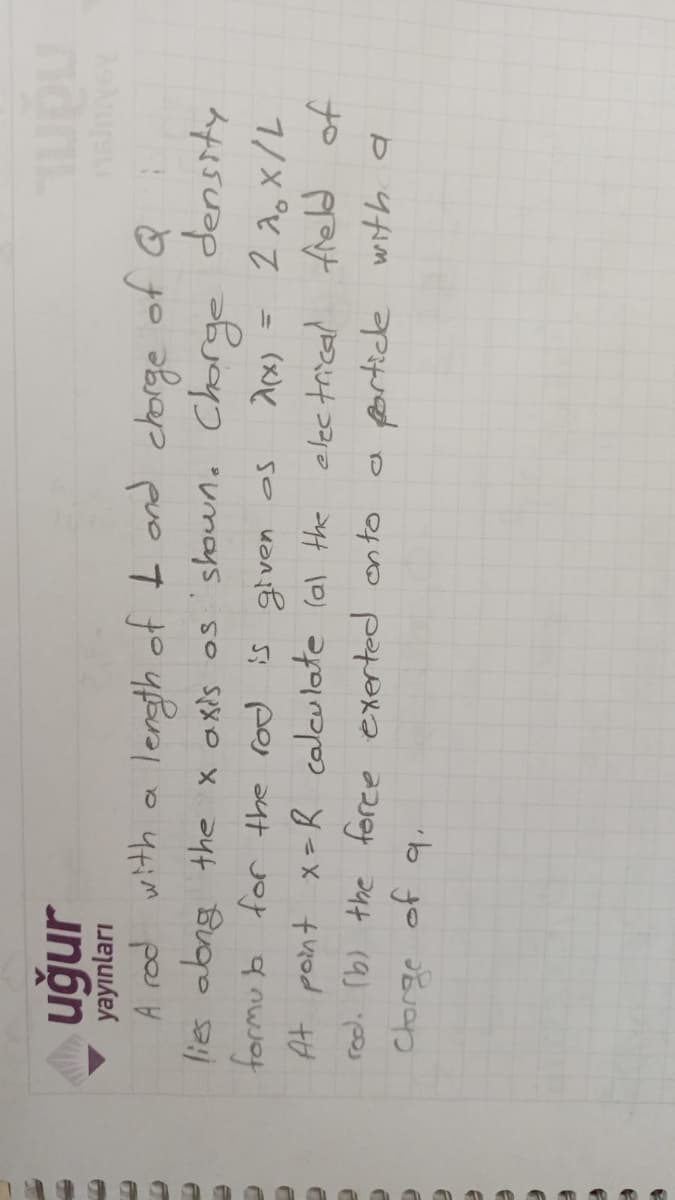 uğur
yayınları
A rod with a length of L and charge of Q :
lies along the x axis as shown. Charge density
formula for the rod is given as λ(x) = 2 λ₀ x/L
At point x=R calculate (a) the electrical field of
rod. (b) the force exerted onto a particle with a
Charge of q.